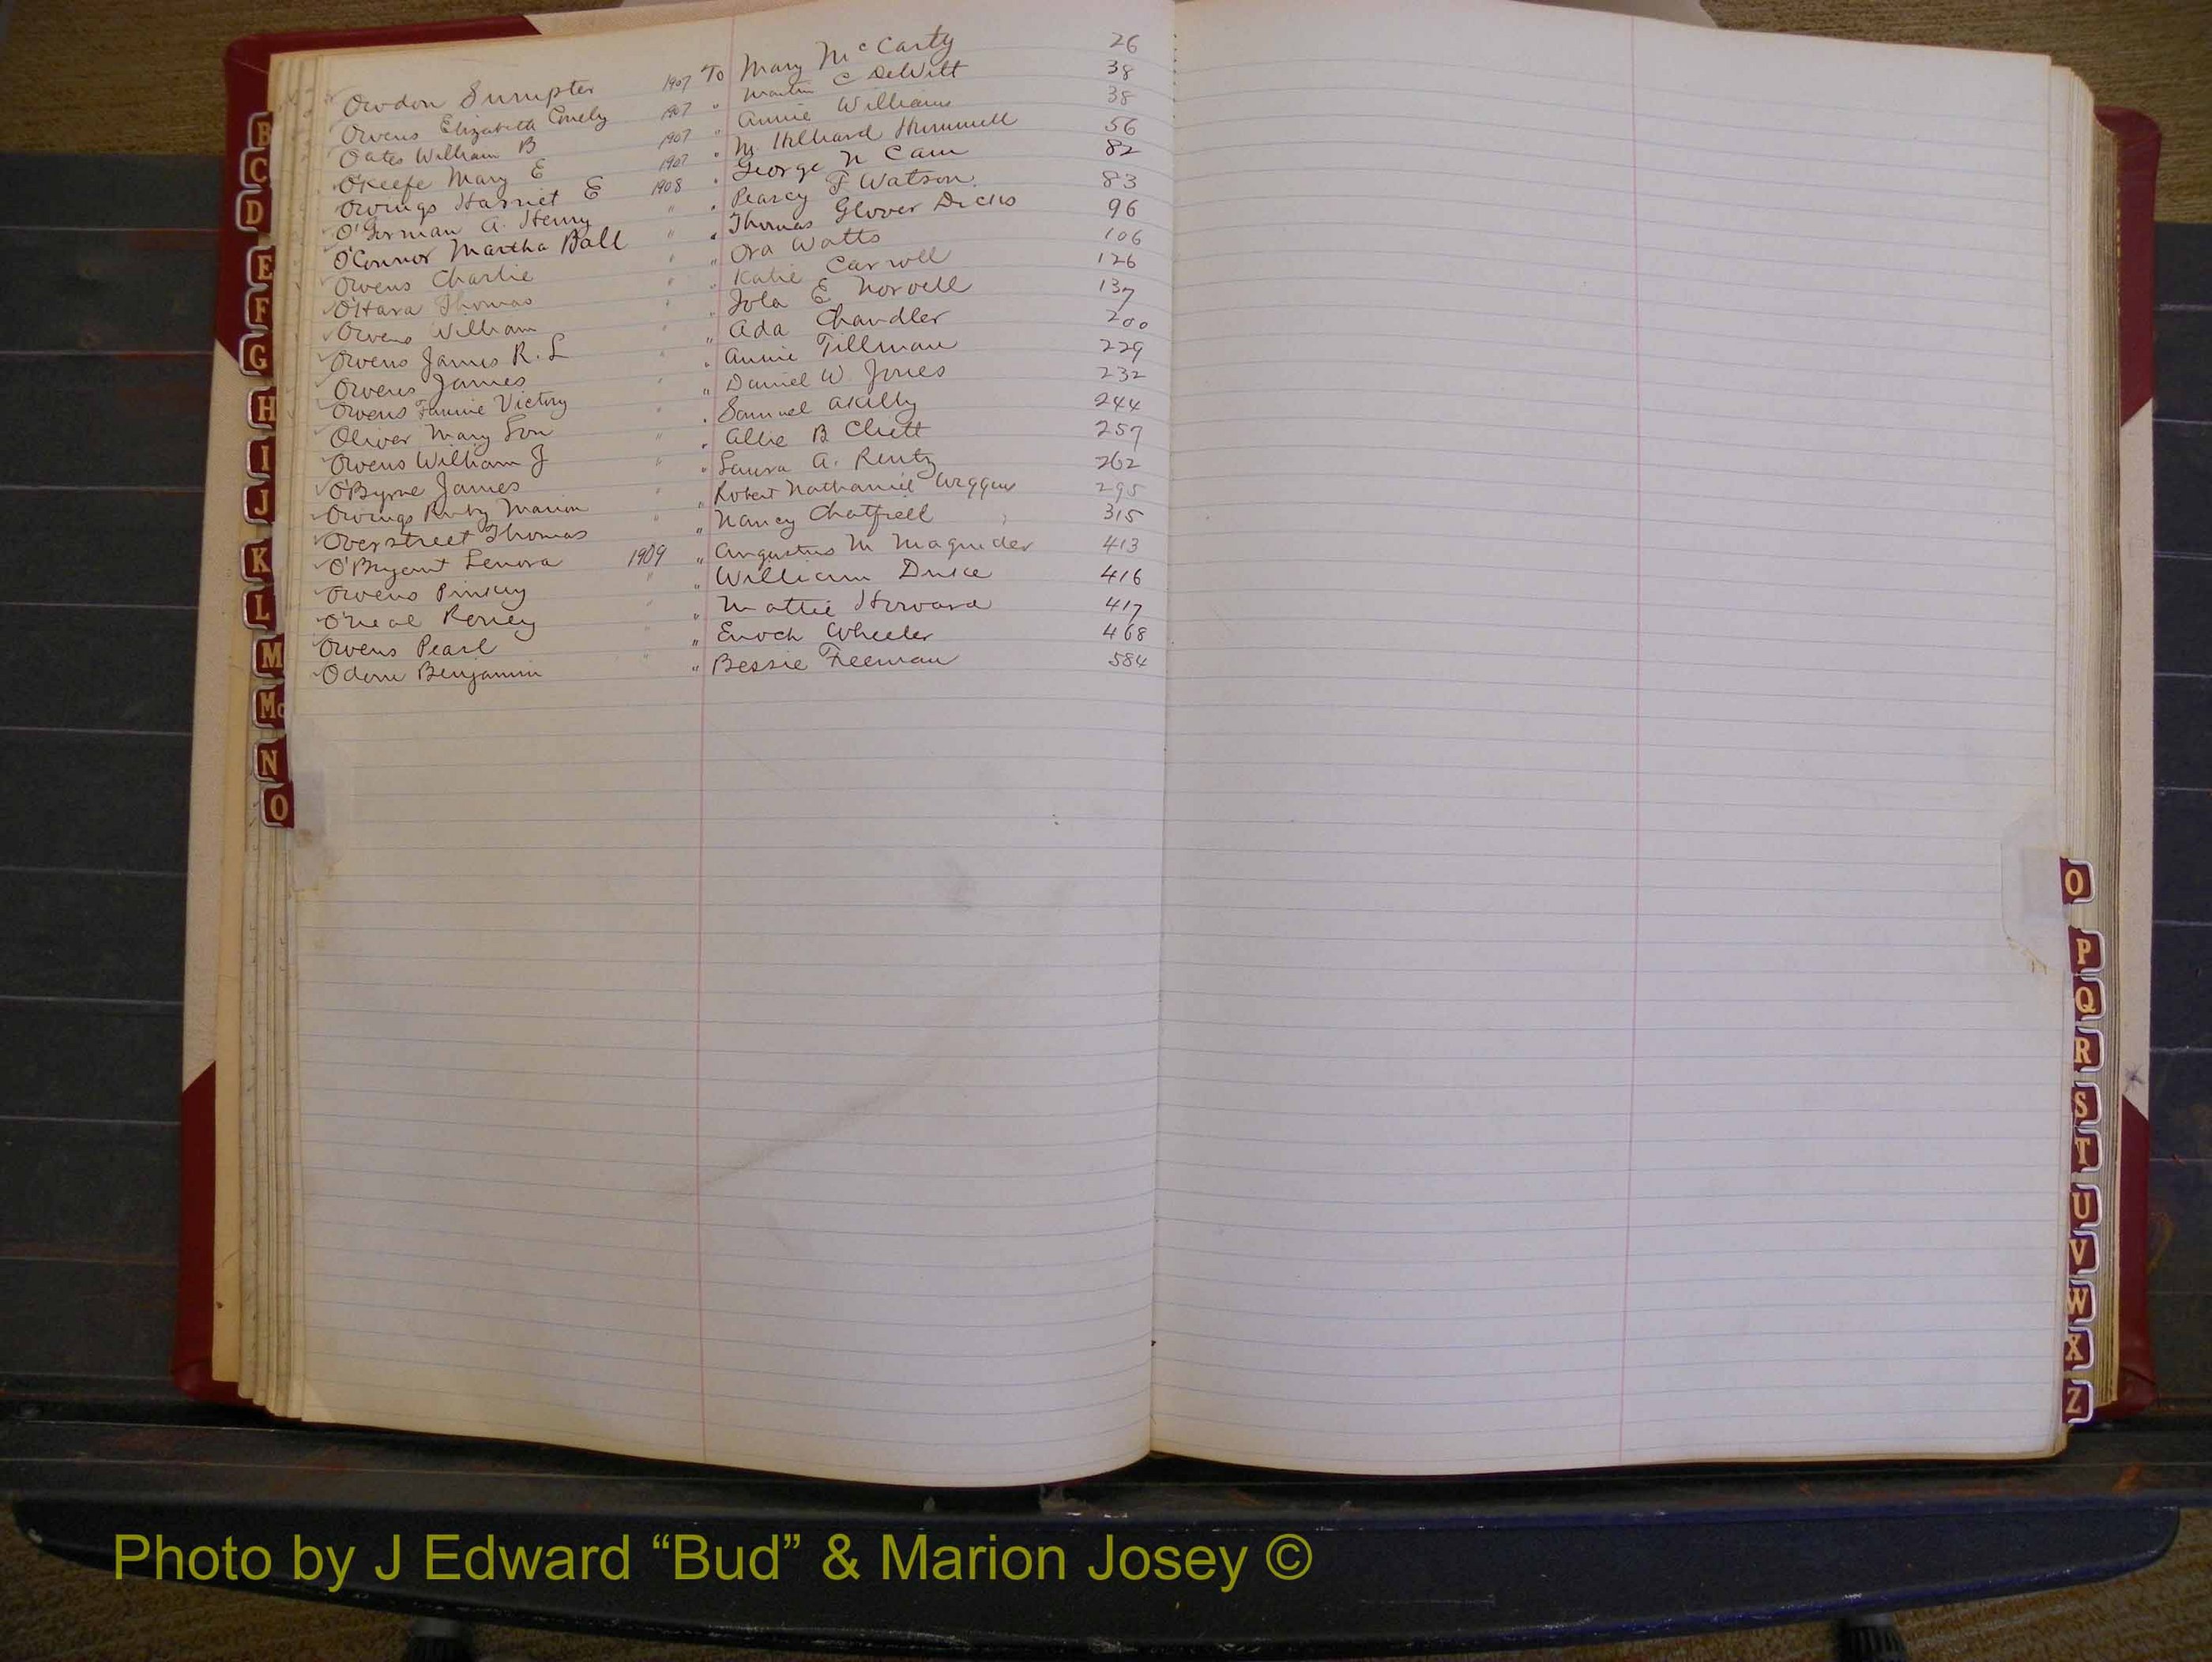 Owdon Sumpter 1907 To Mary McCarty 26
Owens Elizabeth Conely 1907 " Martin C DeWitt 38
Oates William B 1907 " Annie Williams 38
O'Keefe Mary E 1907 " M. Hilliard Hummell 56
Owings Harriet E 1908 " George N Cain 82
O'Gorman A. Henry " " Pearcy F Watson 83
O'Connor Martha Ball " " Thomas Glover Dicks 96
Owens Charlie " " Ora Watts 106
O'Hara Thomas " " Katie Carroll 126
Owens William " " Iola E Norvell 137
Owens James R. L " " Ada Chandler 200
Owens James " " Annie Tillman 229
Owens Fannie Victory " " Daniel W. Jones 232
Oliver Mary Lou " " Samuel Akilly 244
Owens William J " " Allie B Clutt 257
O'Byrne James " " Laura A. Rentz 262
Owings Ruby Marion " " Robert Nathaniel Wiggins 295
Overstreet Thomas " " Nancy Chatfiell 315
O'Bryant Lenora 1909 " Augustus M Magruder 413
Owens Pinkey " " William Duke 416
O'Neal Roney " " Mattie Howard 417
Owens Pearl " " Enoch Wheeler 468
Odom Benjamin " " Bessie Freeman 584
B
C
D
E
F
G
H
I
J
K
L
M
Mc
N
O
O
P
Q
R
S
T
U
V
W
X
Z
Photo by J Edward “Bud” & Marion Josey ©